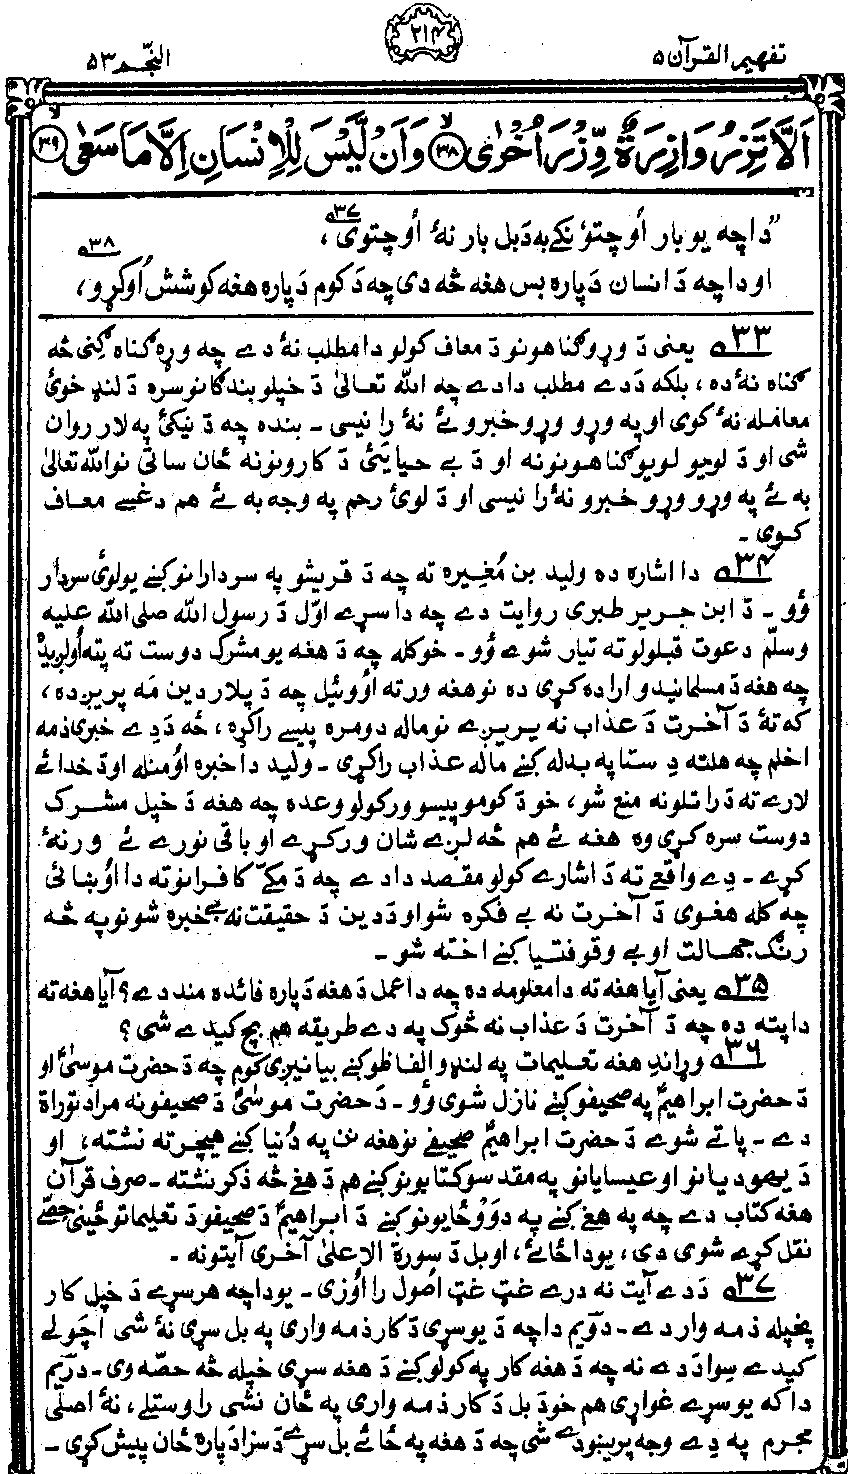 تفهیم القرآن ۵
۲۱۴
النّجم ۵۳
اَلَّا تَزِرُ وَازِرَةٌ وِّزْرَ اُخْرٰى ﴿۳۸﴾ وَاَنْ لَّيْسَ لِلْاِنْسَانِ اِلَّا مَا سَعٰى ﴿۳۹﴾
”دا چه یو بار اُوچتوُنکے به دَ بل بار نهٔ اُوچتوی ۳۷،
او دا چه دَ انسان دَپاره بس هغه څه دی چه دَکوم دَپاره هغه کوشش اُوکړو، ۳۸
۳۳ یعنی دَ وړو ګناهونو دَ معاف کولو دا مطلب نهٔ دے چه وړه ګناه ګنی څه
ګناه نهٔ ده، بلکه دَدے مطلب دا دے چه الله تعالیٰ دَ خپلو بندګانو سره دَ لنډ خوئ
معامله نهٔ کوی او په وړو وړو خبرو ئے نهٔ را نیسی ۔ بنده چه دَ نیکئ په لار روان
شی او دَ لویو لویو ګناهونونه او دَ بے حیایئ دَ کارونونه ځان ساتی نو الله تعالیٰ
به ئے په وړو وړو خبرو نهٔ را نیسی او دَ لوئ رحم په وجه به ئے هم دغسے معاف
کوی ۔
۳۴ دا اشاره ده ولید بن مُغیره ته چه دَ قریشو په سردارانو کښے یو لوئ سردار
وُو ۔ دَ ابن جریر طبری روایت دے چه دا سړے اوّل دَ رسول الله صلی الله علیه
وسلّم دعوت قبلولو ته تیار شوے وُو ۔ خو کله چه دَ هغه یو مشرک دوست ته پته اُولږیدهٔ
چه هغه دَ مسلمانیدو اراده کړی ده نو هغه ورته اُووئیل چه دَ پلار دین مَه پریږده،
که تهٔ دَ آخرت دَ عذاب نه یریږے نو ماله دومره پیسے راکړه، څه دَدِے خبرے ذمه
اخلم چه هلته دِ ستا په بدله کښے ماله عذاب راکړی ۔ ولید دا خبره اُومنله او دَ خدائے
لارے ته دَ راتلونه منع شو، خو دَ کومو پیسو ورکولو وعده چه هغه دَ خپل مشرک
دوست سره کړی وه هغه ئے هم څه لږے شان ورکړے او باقی نورے ئے ورنهٔ
کړے ۔ دِے واقعے ته دَ اشارے کولو مقصد دا دے چه دَ مکے کافرانو ته دا اُوښائی
چه کله هغوی دَ آخرت نه بے فکره شو او دَ دین دَ حقیقت نه بے خبره شو نو په څه
رنګ جهالت او بے وقوفتیا کښے اخته شو ۔
۳۵ یعنی آیا هغه ته دا معلومه ده چه دا عمل دَ هغه دَپاره فائده مند دے؟ آیا هغه ته
دا پته ده چه دَ آخرت دَ عذاب نه څوک په دے طریقه هم بچ کیدے شی؟
۳۶ وړاندِ هغه تعلیمات په لنډو الفاظو کښے بیانیږی کوم چه دَ حضرت موسیٰؑ او
دَ حضرت ابراهیمؑ په صحیفو کښے نازل شوی وُو ۔ دَ حضرت موسیٰؑ دَ صحیفونه مراد توراة
دے ۔ پاتے شوے دَ حضرت ابراهیمؑ صحیفے نو هغه نن په دُنیا کښے هیچرته نشته، او
دَ یهودیانو او عیسایانو په مقدسو کتابونو کښے هم دَ هغے څه ذکر نشته ۔ صرف قرآن
هغه کتاب دے چه په هغے کښے په دوَو ځایونو کښے دَ ابراهیمؑ دَ صحیفو دَ تعلیماتو ځینی حِصّے
نقل کړے شوی دی، یو دا ځائے، او بل دَ سورة الاعلیٰ آخری آیتونه ۔
۳۷ دَ دے آیت نه درے غټ غټ اصُول را اُوزی ۔ یو دا چه هر سړے دَ خپل کار
پخپله ذمه وار دے ۔ دوَیم دا چه دَ یو سړی دَ کار ذمه واری په بل سړی نهٔ شی اچولے
کیدے سوا دَدے نه چه دَ هغه کار په کولو کښے دَ هغه سړی خپله څه حصّه وی ۔ درَیم
دا که یو سړے غواړی هم خو دَ بل دَ کار ذمه واری په ځان نشی راوستلے، نهٔ اصلی
مجرم په دِے وجه پرېښودے شی چه دَ هغه په ځائے بل سړے دَ سزا دَپاره ځان پیش کړی ۔